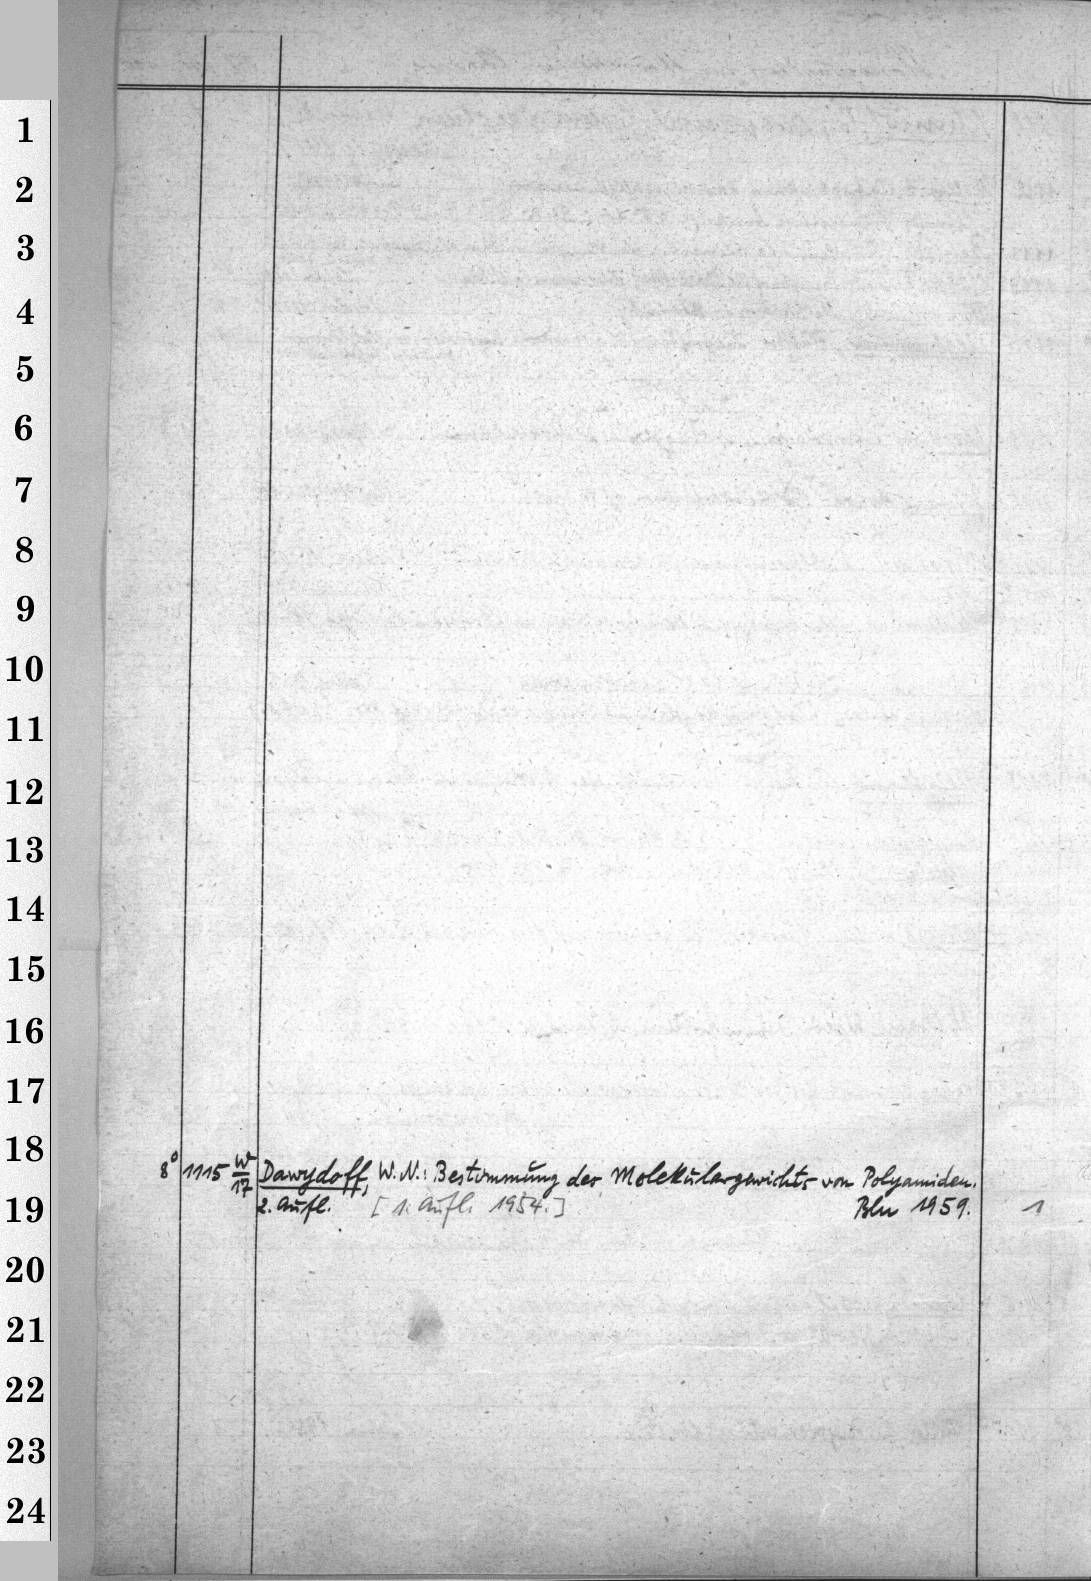 1
2
3
4
5
6
7
8
9
10
11
12
13
14
15
16
17
18
8° 1115 W/17 Dawydoff, W. N.: Bestimmung der Molekülargewichts von Polyamiden.
19
2. Aufl. [1. Aufl. 1954.] Bln 1959. 1
20
21
22
23
24